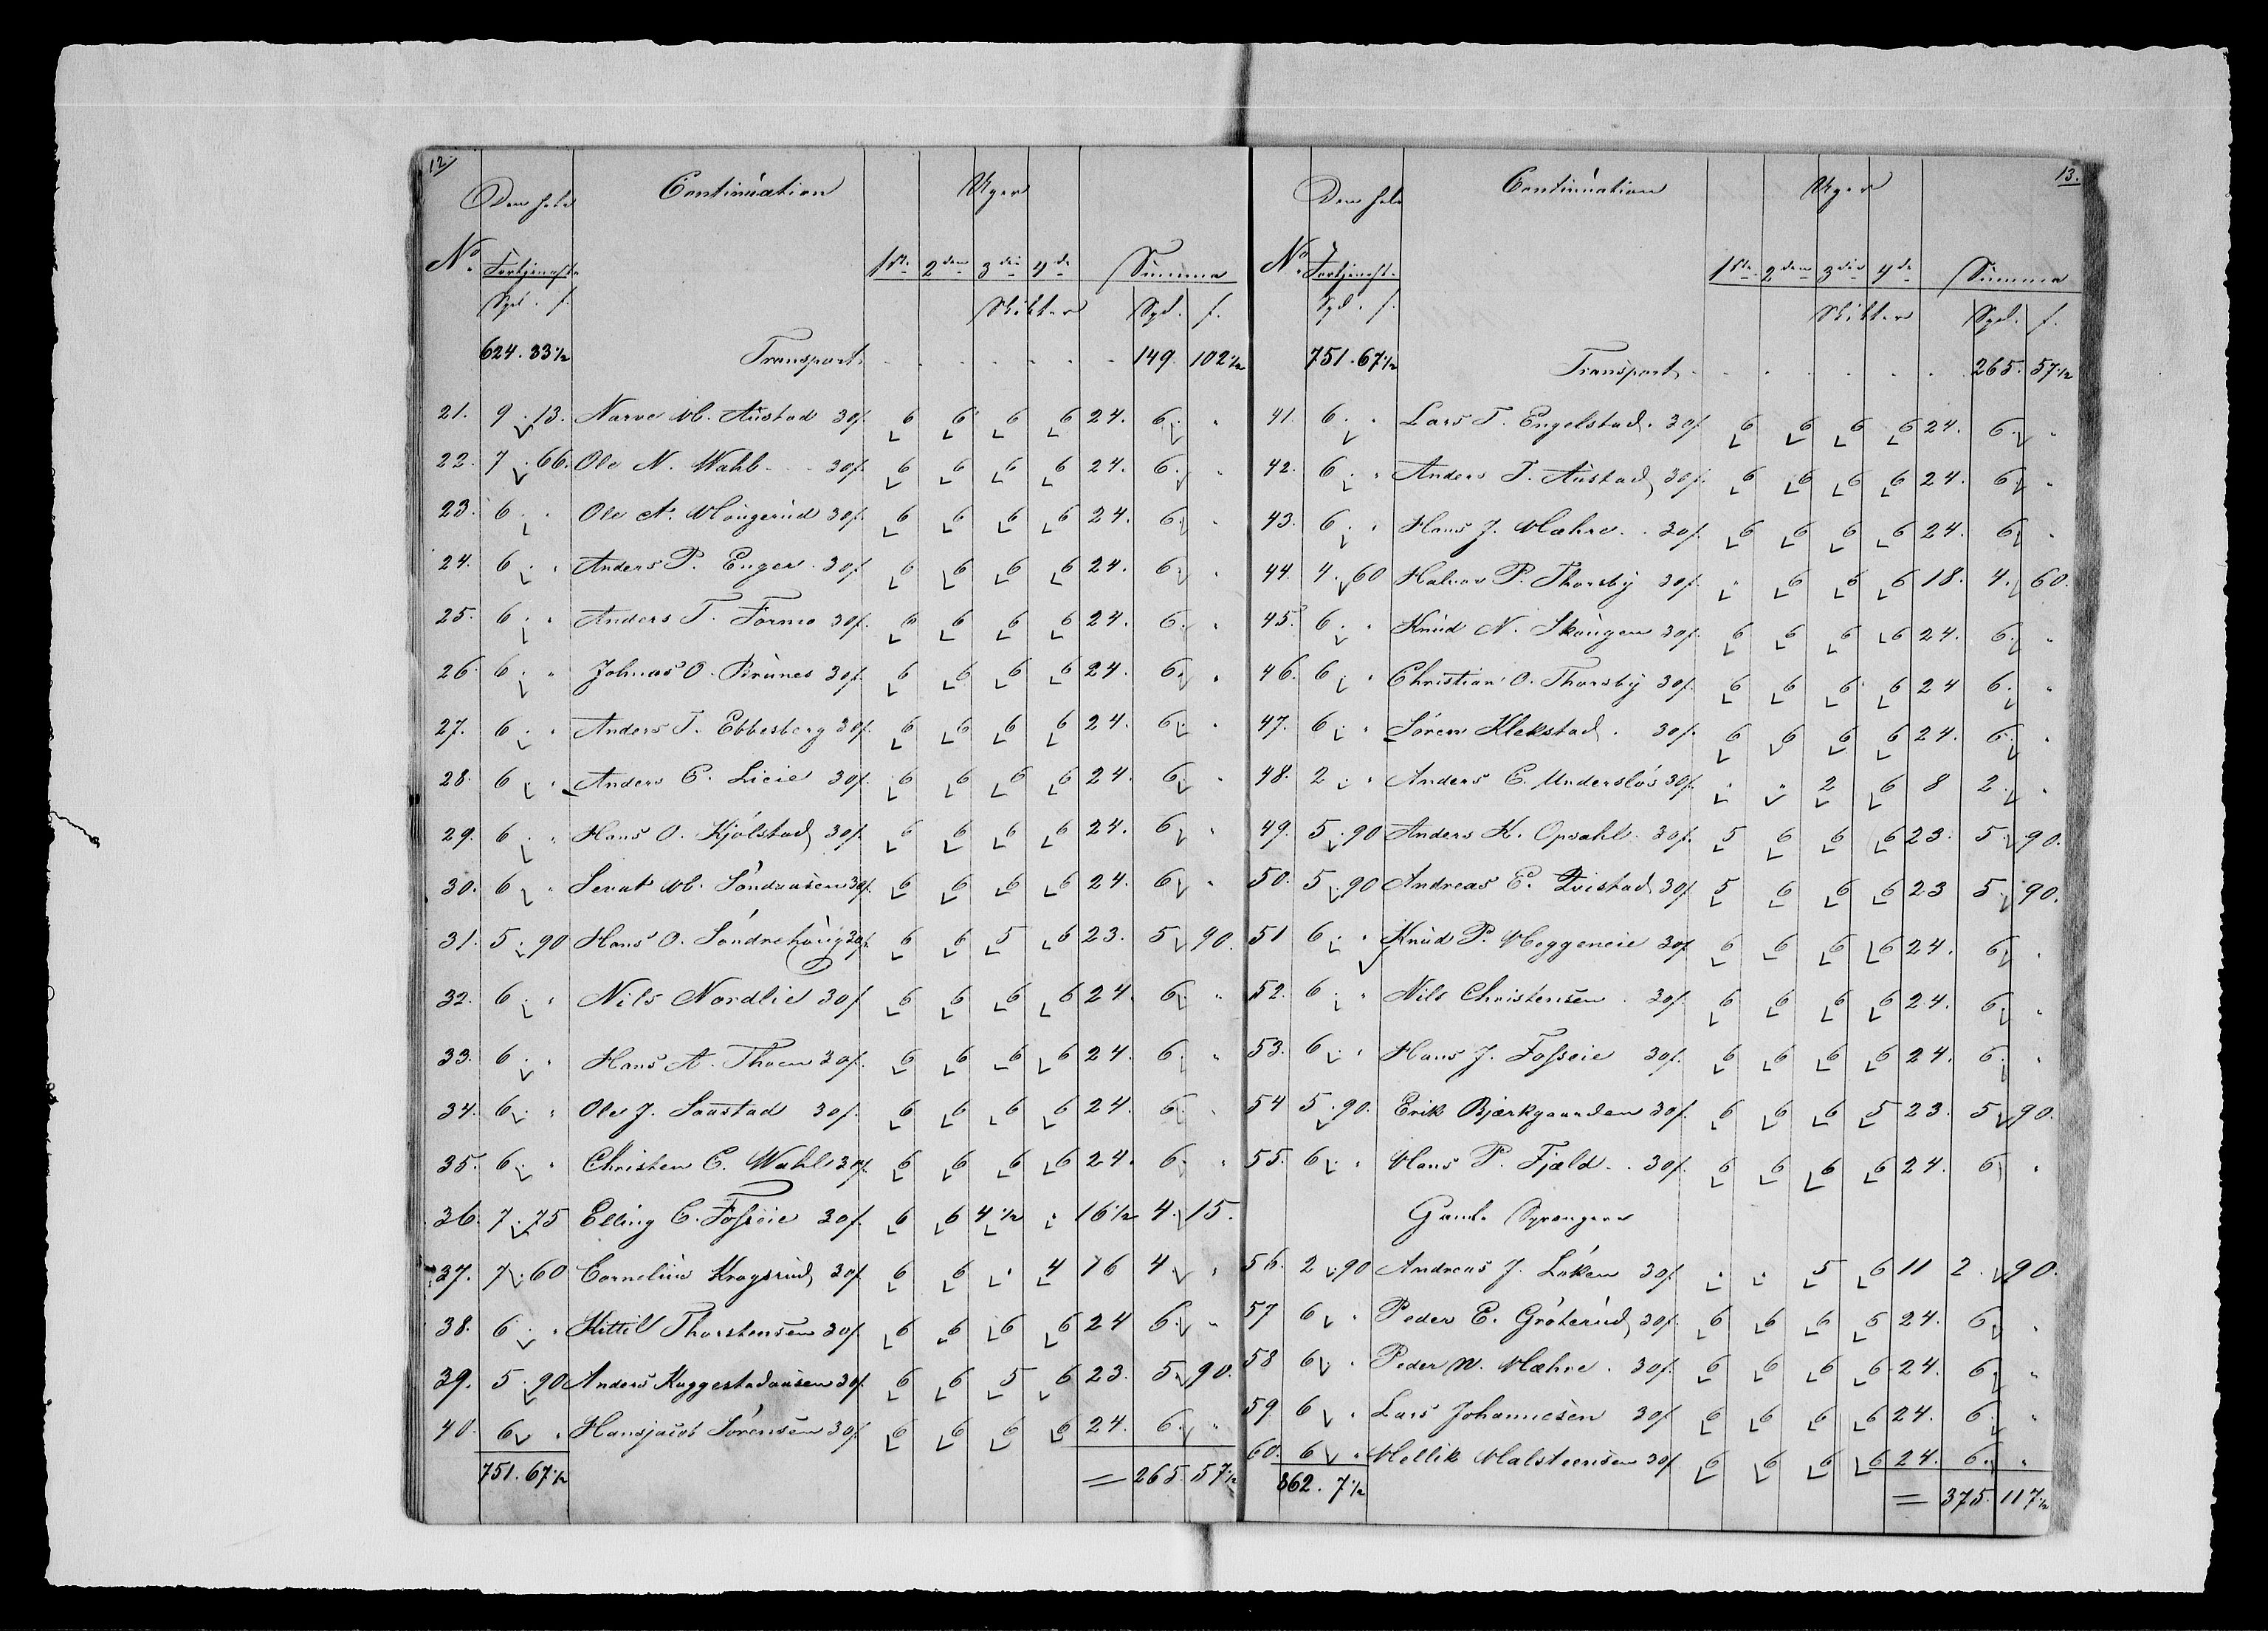 12.
Den hele Continuation Uger
No. Fortjeneste 1ste 2den 3die 4de Summa
Spd. s. Skikter Spd. s.
624. 33½ Transport. 149. 102½
21. 9. 13. Narve M. Austad 30s. 6 6 6 6 24. 6. "
22. 7. 66. Ole N. Wahl 30s. 6 6 6 6 24. 6. "
23. 6. " Ole A. Mougerud 30s. 6 6 6 6 24. 6. "
24. 6. " Anders P. Enger 30s. 6 6 6 6 24. 6. "
25. 6. " Anders T. Formo 30s. 6 6 6 6 24. 6. "
26. 6. " Johnas O. Brunes 30s. 6 6 6 6 24. 6. "
27. 6. " Anders T. Ebbesberg 30s. 6 6 6 6 24. 6. "
28. 6. " Anders E. Lieie 30s. 6 6 6 6 24. 6. "
29. 6. " Hans O. Kjölstad 30s. 6 6 6 6 24. 6. "
30. 6. " M. Söndaasen 30s. 6 6 6 6 24. 6. "
31. 5. 90 Hans O. Söndrehoug 30s. 6 6 5 6 23. 5. 90.
32. 6. " Nils Nordlie 30s. 6 6 6 6 24. 6. "
33. 6. " Hans A. Thoen 30s. 6 6 6 6 24. 6. "
34. 6. " Ole J. Saustad 30s. 6 6 6 6 24. 6. "
35. 6. " Christen C. Wahl 30s. 6 6 6 6 24. 6. "
36. 7. 75 Elling C. Fosseie 30s. 6 6 4½ " 16½ 4. 15.
37. 7. 60 Cornelius Kragsrud 30s. 6 6 " 4 16 4. "
38. 6. " Kittil Thorstensen 30s. 6 6 6 6 24 6. "
39. 5. 90 Anders Kuggestadaasen 30s. 6 6 5 6 23. 5. 90.
40. 6. " Hansjacob Sörensen 30s. 6 6 6 6 24. 6. "
751. 67½ = 265. 57½
13.
Den hele Continuation Uger
No. Fortjenest. 1ste 2den 3die 4de Summa
Spd. s. Skikter Spd. s.
751. 67½ Transport. 265. 57½
41. 6. " Lars T. Engelstad. 30s. 6 6 6 6 24. 6. "
42. 6. " Anders T. Austad 30s. 6 6 6 6 24. 6. "
43. 6. " Hans J. Mæhre. 30s. 6 6 6 6 24. 6. "
44. 4. 60 Halvor P. Thorsby 30s. " 6 6 6 18. 4. 60.
45. 6. " Knud N. Skougen 30s. 6 6 6 6 24. 6. "
46. 6. " Christian O. Thorsby 30s. 6 6 6 6 24 6. "
47. 6. " Sören Klekstad. 30s. 6 6 6 6 24. 6. "
48. 2. " Anders E. Underslös 30s. " " 2 6 8 2. "
49. 5. 90 Anders K. Opsahl. 30s. 5 6 6 6 23. 5. 90.
50. 5. 90 Andreas E. Tvistad 30s. 5 6 6 6 23 5. 90.
51 6. " Knud P. Meggeneie 30s. 6 6 6 6 24. 6. "
52. 6. " Nils Christensen 30s. 6 6 6 6 24. 6. "
53. 6. " Hans J. Fosseie 30s. 6 6 6 6 24. 6. "
54 5. 90. Erik Bjerkgaarden 30s. 6 6 6 5 23. 5. 90.
55. 6. " Mons P. Fjæld 30s. 6 6 6 6 24. 6 "
Gamle
56. 2. 90 Andreas J. Löken 30s. " " 5 6 11 2. 90.
57 6. " Peder E. Gröterud 30s. 6 6 6 6 24. 6. "
58 6. " Peder N. Mæhre. 30s. 6 6 6 6 24. 6. "
59. 6. " Lars Johannesen 30s. 6 6 6 6 24. 6. "
60. 6. " Mellik Malsteensen 30s. 6 6 6 6 24. 6. "
862. 7½ = 375. 117½